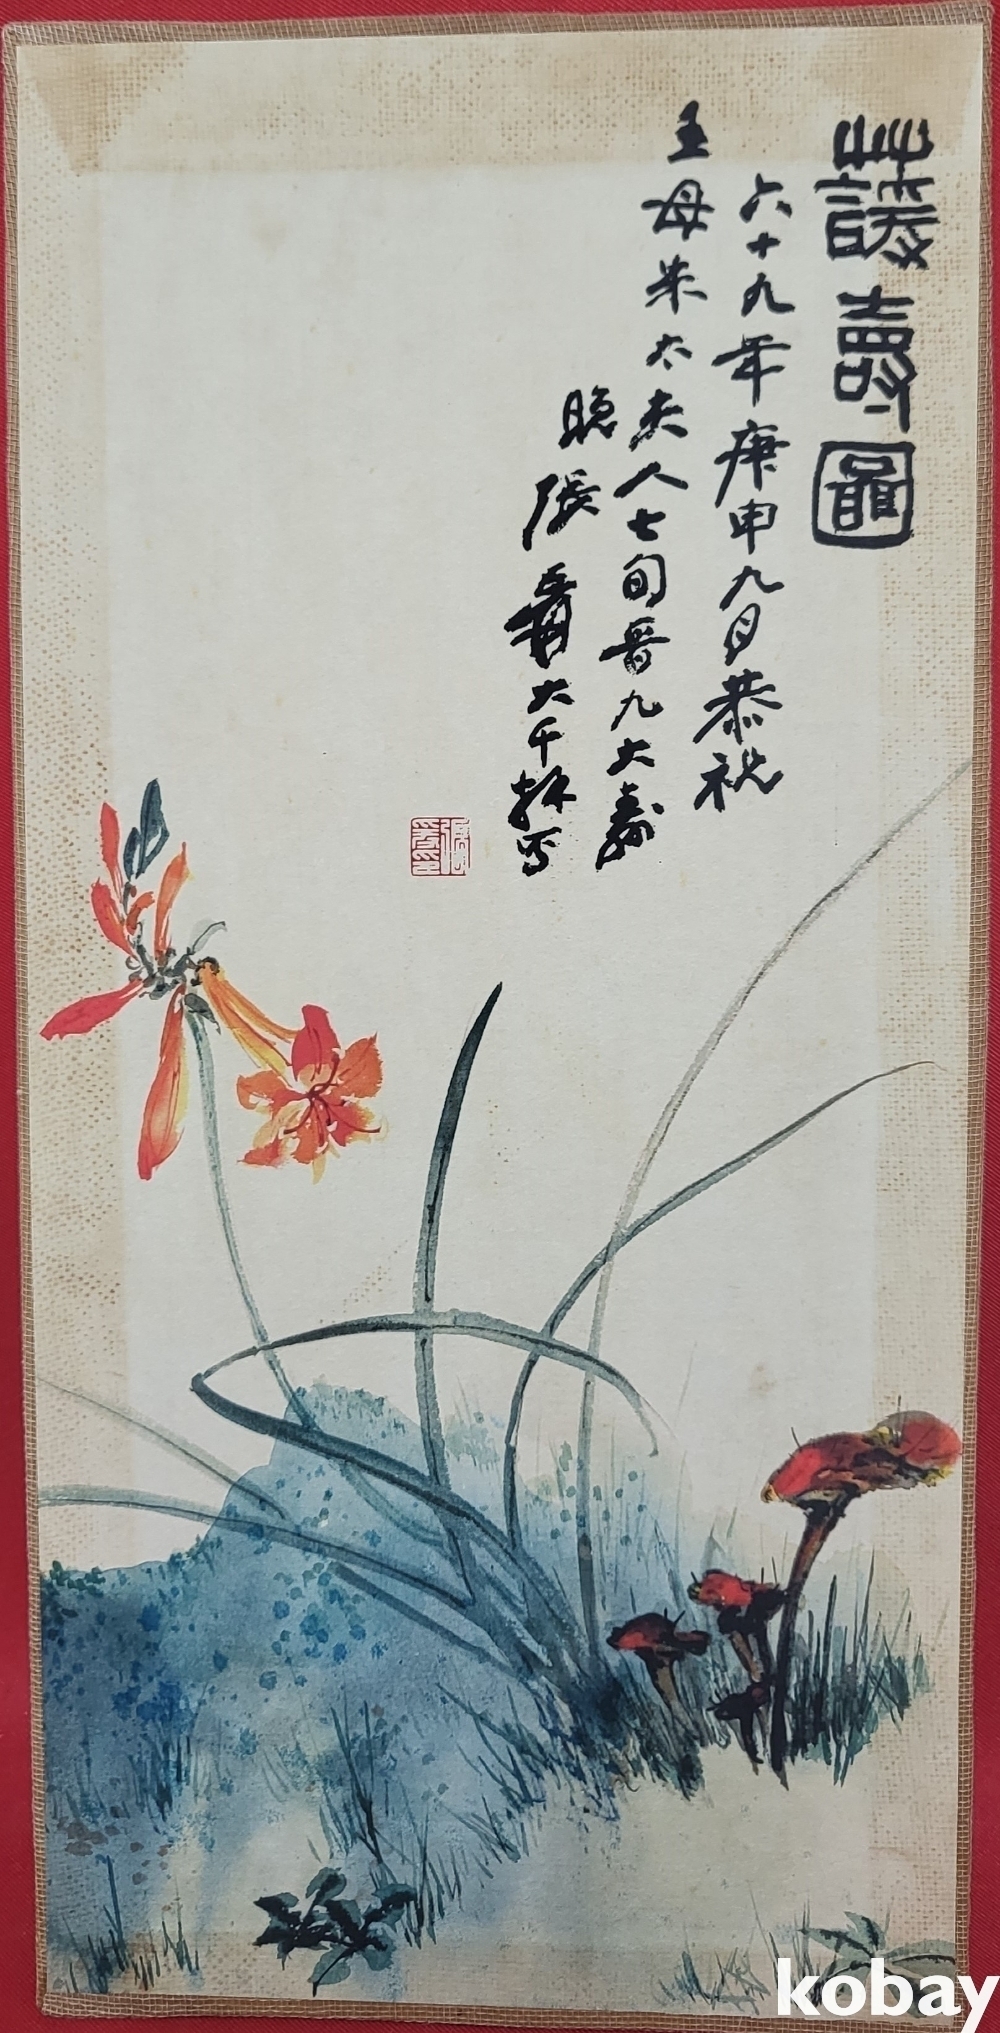 蘐壽圖
六十九年庚申九月恭祝
王母朱太夫人七旬晉九大壽
晚張爰大千拜写
張爰之印
kobay